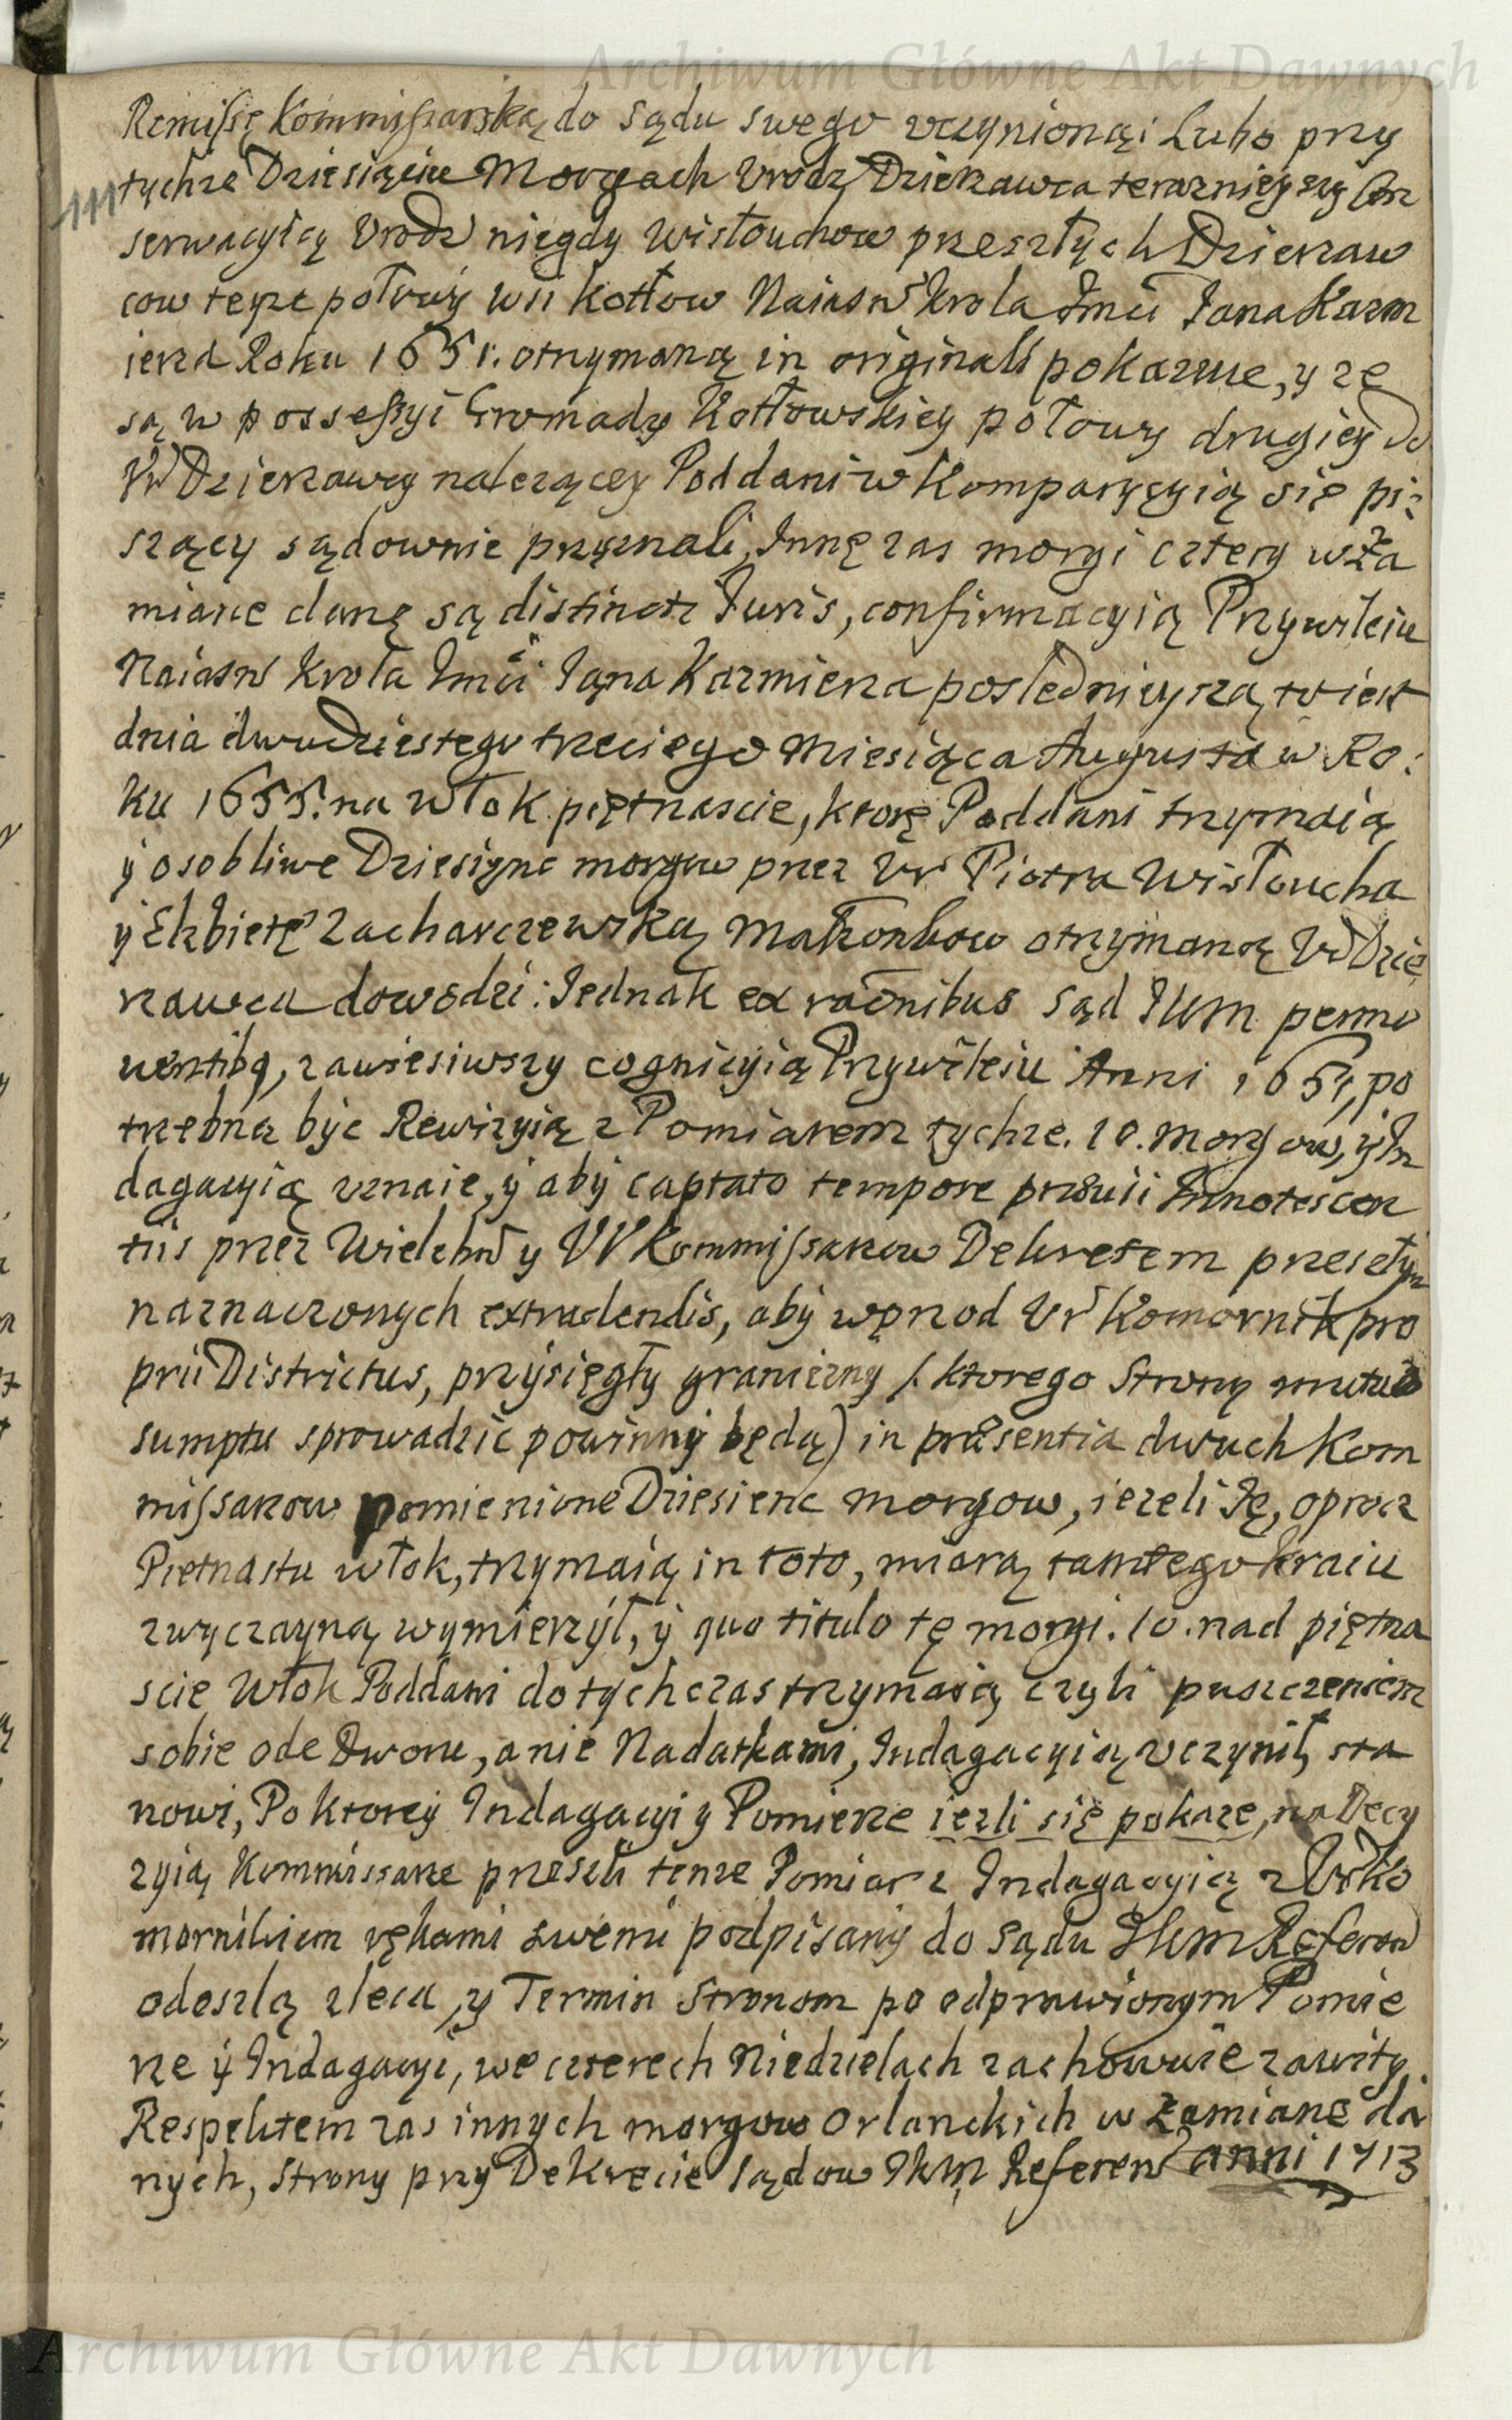 Archiwum Główne Akt Dawnych
Remissę Kommissarską do sądu swego vczynioną i Lubo przy
111 tychże Dziesiąciu Morgach Vrodz Dzierzawca teraznieyszy Con
serwacyią Vrodz niegdy Wisłouchow przeszłych Dzierzaw
cow teyże połowy wsi Kotłow Naiasn Krola Jmci Jana Kazm
ierza Roku 1651. otrzymaną in originali pokazuie, y ze
są w possessyi Gromady Kotłowskiey połowy drugiey do
Vr Dzierzawcy nalezącey Poddani w Komparycyią się pi:
szący sądownie przyznali, Innę zas morgi cztery w Za
mianę danę są distincti Juris, confirmacyią Przywileiu
Naiasn Krola Jmci Jana Kazmierza poslednieyszą, to iest
dnia dwudziestego trzeciego Miesiąca Augusta w Ro:
ku 1655. na włok piętnascie, ktorę Poddani trzymaią
y osobliwe Dziesięnc morgow przez Vr Piotra Wisłoucha
y Elzbietę Zacharczewską Małzonkow otrzymaną Vr Dzie
rzawca dowodzi: Jednak ex raonibus sąd JKM permo
uentibq, zawiesiwszy cognicyią Przywileiu Anni 1651, po
trzebną być Rewizyią z Pomiarem tychze. 10. morgow, y In
dagacyią vznaie, y aby captato tempore præuii Innotescen
tiis przez Wielebn y VV Kommissarzow Dekretem przeszłym
naznaczonych extradendis, aby wprzod Vr Komornik pro
prii Districtus, przysięgły graniczny /. ktorego Strony mutuo
sumptu sprowadzic powinny będą) in præsentia dwuch Kom
missarzow pomienione Dziesienc morgow, iezeli Ię, oprocz
Pietnastu włok, trzymaią in toto, miarą tamtego kraiu
zwyczayną wymierzył, y quo titulo tę morgi. 10. nad piętna
scie Włok Poddani dotychczas trzymaią czyli puszczeniem
sobie ode Dworu, a nie Nadatkami, Indagacyią vczynił, sta
nowi, Po ktorey Indagacyi y Pomierze iezli się pokaze, na Decy
zyią Kommissarze przeszli tenze Pomiar z Indagacyią z Vr Ko
mornikiem rękami swemi podpisany do sądu JKM Referen
odeszlą zleca, y Termin Stronom po odprawionym Pomie
rze y Indagacyi, we czterech Niedzielach zachowuie zawity,
Respektem zas innych morgow Orlanckich w Zamianę da
nych, Strony przy Dekrecie sądow JKM Referen anni 1713
Archiwum Główne Akt Dawnych